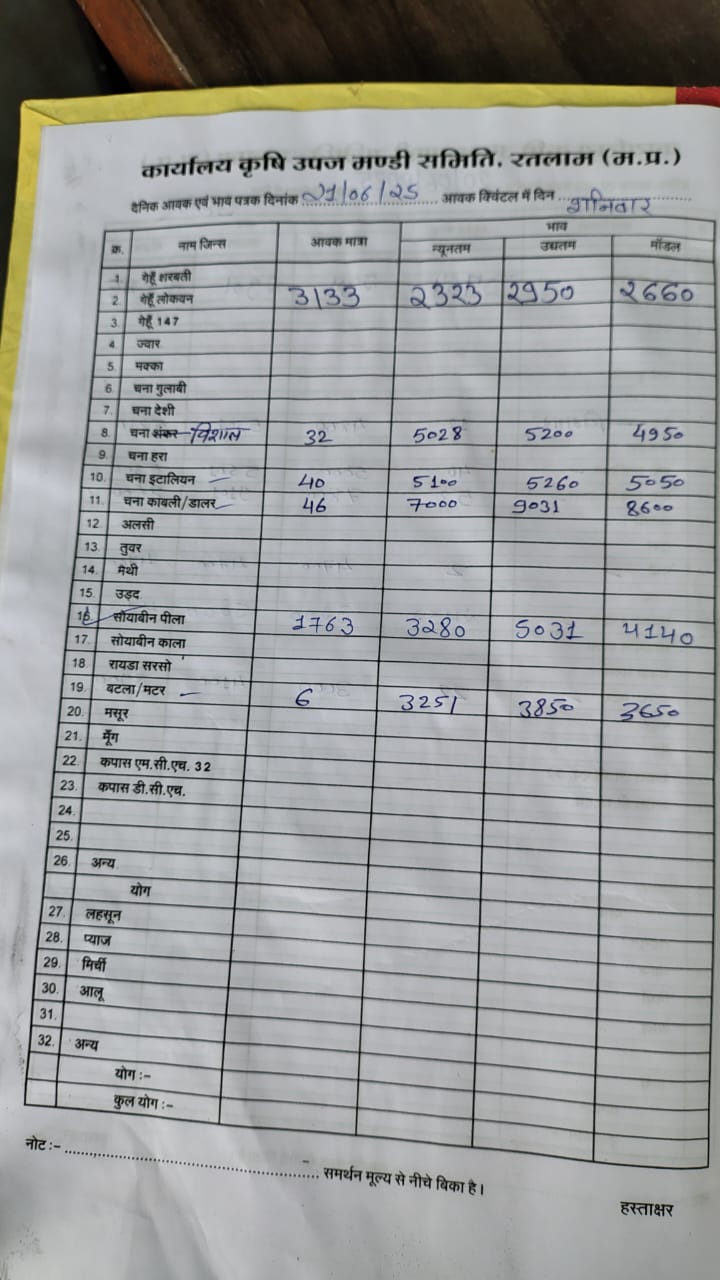 कार्यालय कृषि उपज मण्डी समिति, रतलाम (म.प्र.)
दैनिक आवक एवं भाव पत्रक दिनांक 21/06/25 आवक क्विंटल में दिन शनिवार
क्र. नाम जिन्स आवक मात्रा भाव
न्यूनतम उच्चतम मॉडल
1. गेहूँ शरबती
2. गेहूँ लोकवन 3133 2323 2950 2660
3. गेहूँ 147
4. ज्वार
5. मक्का
6. चना गुलाबी
7. चना देशी
8. चना शंकर विशाल 32 5028 5200 4950
9. चना हरा
10. चना इटालियन 40 5100 5260 5050
11. चना काबली/डालर 46 7000 9031 8600
12. अलसी
13. तुवर
14. मेथी
15. उड़द
16. सोयाबीन पीला 1763 3280 5031 4140
17. सोयाबीन काला
18. रायडा सरसो
19. बटला/मटर 6 3251 3850 3650
20. मसूर
21. मूँग
22. कपास एम.सी.एच. 32
23. कपास डी.सी.एच.
24.
25.
26. अन्य
योग
27. लहसून
28. प्याज
29. मिर्ची
30. आलू
31.
32. अन्य
योग :-
कुल योग :-
नोट :- समर्थन मूल्य से नीचे बिका है।
हस्ताक्षर